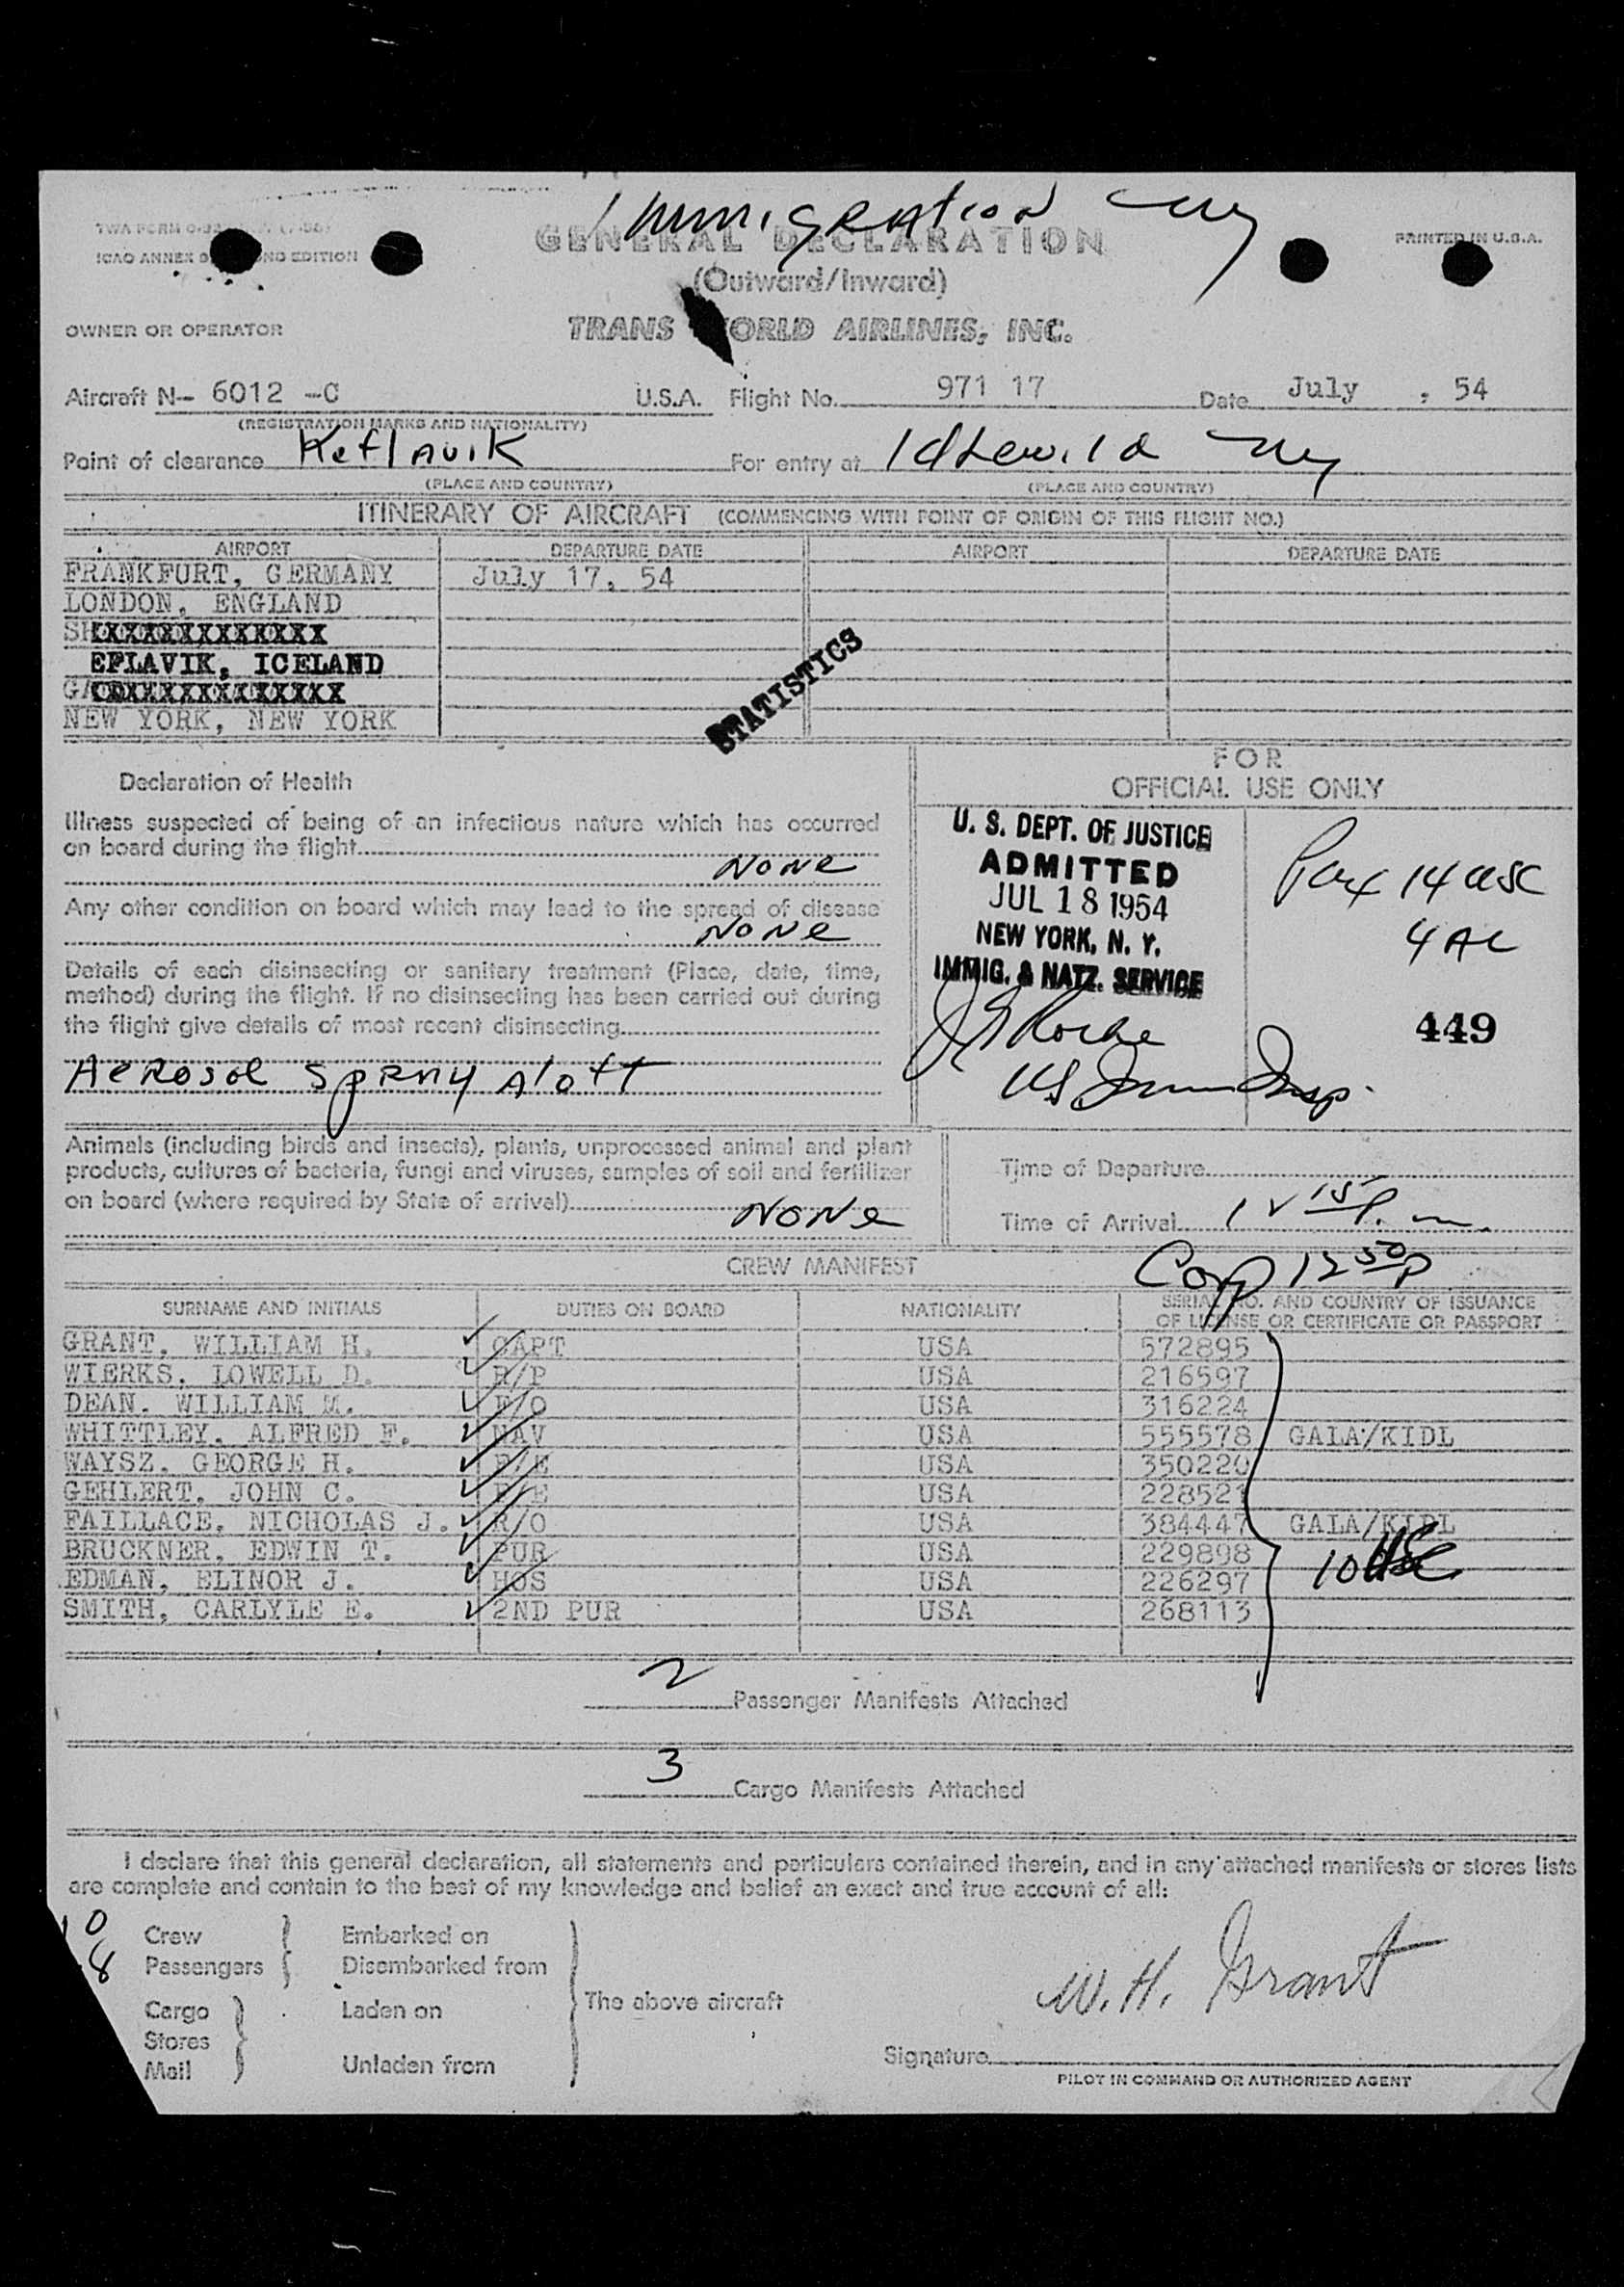 Immigration NY
TWA FORM
ICAO ANNEX 9 SECOND EDITION
GENERAL DECLARATION
PRINTED IN U.S.A.
(Outward/Inward)
OWNER OR OPERATOR
TRANS WORLD AIRLINES, INC.
Aircraft N- 6012 -C U.S.A. Flight No. 971 17 Date July , 54
(REGISTRATION MARKS AND NATIONALITY)
Point of clearance Keflavik For entry at Idlewild NY
(PLACE AND COUNTRY) (PLACE AND COUNTRY)
ITINERARY OF AIRCRAFT (COMMENCING WITH POINT OF ORIGIN OF THIS FLIGHT NO.)
AIRPORT DEPARTURE DATE AIRPORT DEPARTURE DATE
FRANKFURT, GERMANY July 17, 54
LONDON, ENGLAND
SHXXXXXXXXXXXXX
EFLAVIK, ICELAND
STATISTICS
NEW YORK, NEW YORK
FOR
OFFICIAL USE ONLY
Declaration of Health
Illness suspected of being of an infectious nature which has occurred
on board during the flight
None
Any other condition on board which may lead to the spread of disease
None
Details of each disinsecting or sanitary treatment (Place, date, time,
method) during the flight. If no disinsecting has been carried out during
the flight give details of most recent disinsecting
Aerosol spray aloft
U. S. DEPT. OF JUSTICE
ADMITTED
JUL 18 1954
NEW YORK, N. Y.
IMMIG. & NATZ. SERVICE
Roche
US Imm Insp.
Pax 14 USC
4 AL
449
Animals (including birds and insects), plants, unprocessed animal and plant
products, cultures of bacteria, fungi and viruses, samples of soil and fertilizer
on board (where required by State of arrival)
None
Time of Departure
Time of Arrival 12 15 P. m.
Comp 12 50 P
CREW MANIFEST
SURNAME AND INITIALS DUTIES ON BOARD NATIONALITY SERIAL NO. AND COUNTRY OF ISSUANCE
OF LICENSE OR CERTIFICATE OR PASSPORT
GRANT, WILLIAM H. CAPT USA 572895
WIERKS, LOWELL D. R/P USA 216597
DEAN. WILLIAM M. F/O USA 316224
WHITTLEY, ALFRED F. NAV USA 555578 GALA/KIDL
WAYSZ. GEORGE H. F/E USA 350220
GEHLERT, JOHN C. F/E USA 228521
FAILLACE, NICHOLAS J. R/O USA 384447 GALA/KIDL
BRUCKNER, EDWIN T. PUR USA 229898
EDMAN, ELINOR J. HOS USA 226297
10 USC
SMITH, CARLYLE E. 2ND PUR USA 268113
2 Passenger Manifests Attached
3 Cargo Manifests Attached
I declare that this general declaration, all statements and particulars contained therein, and in any attached manifests or stores lists
are complete and contain to the best of my knowledge and belief an exact and true account of all:
10 Crew Embarked on
8 Passengers Disembarked from
Cargo Laden on The above aircraft
Stores
Mail Unladen from
W. H. Grant
Signature
PILOT IN COMMAND OR AUTHORIZED AGENT